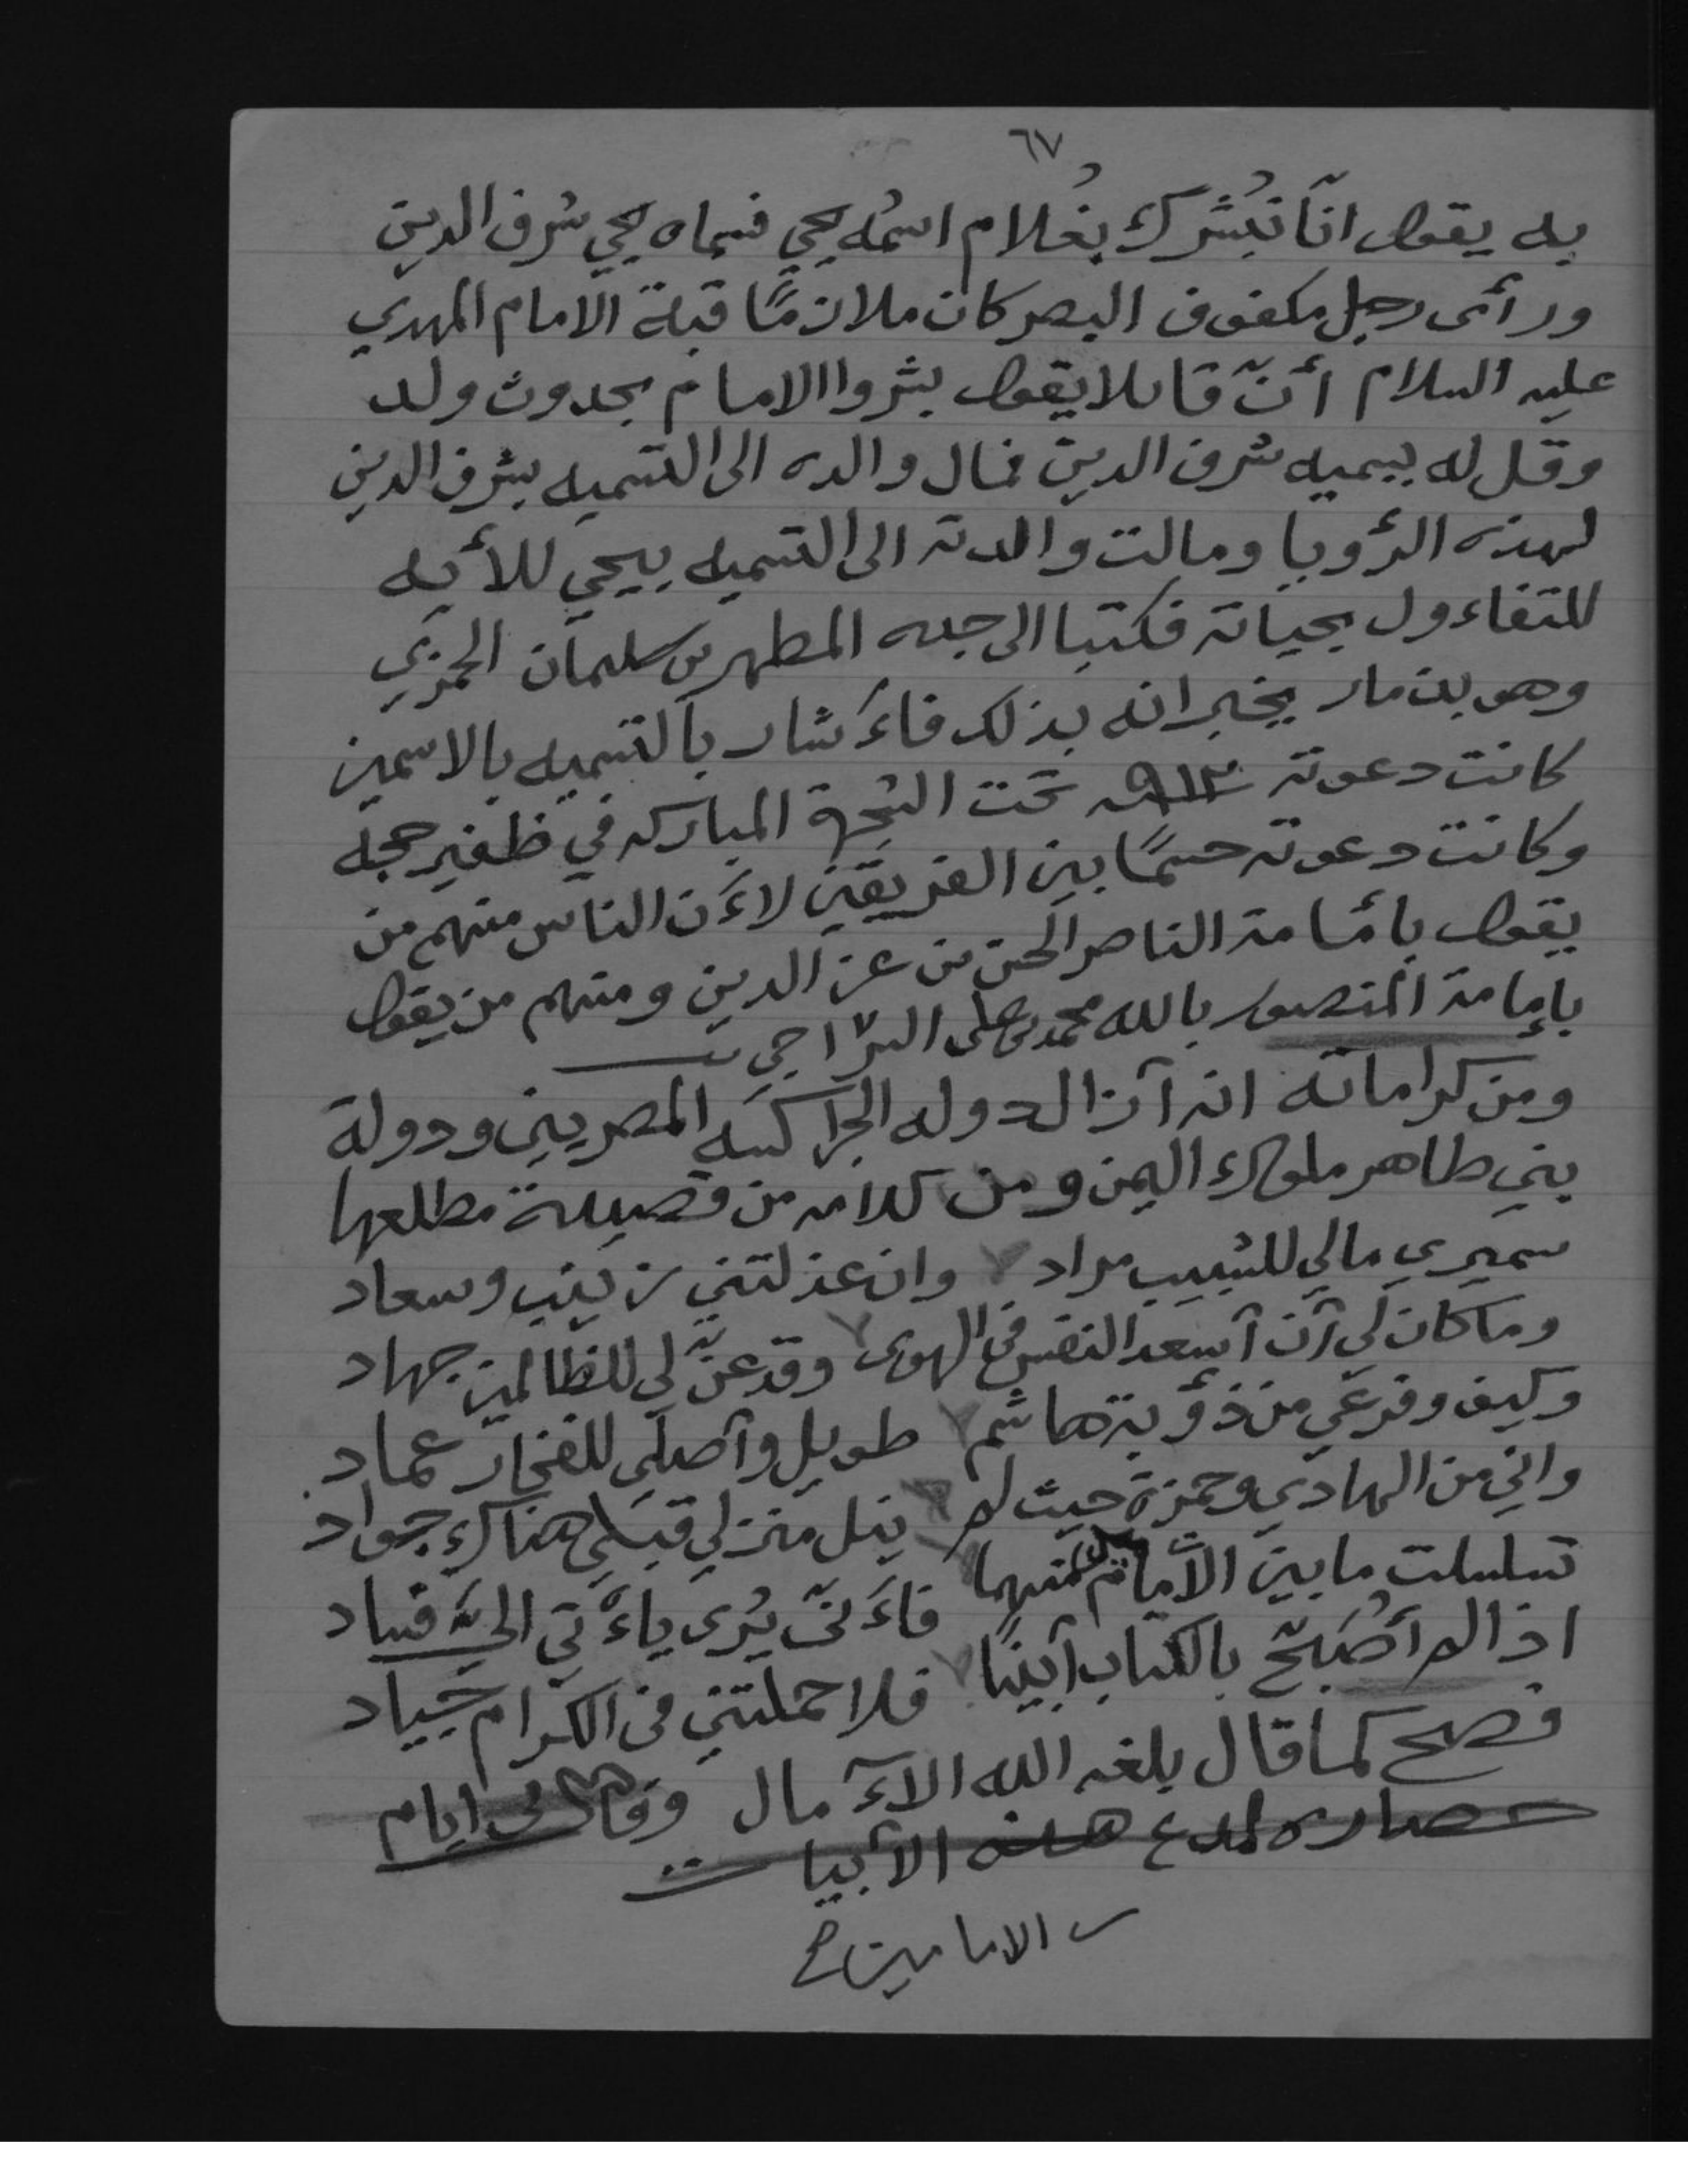 ٦٧
به يقول انّا نُبَشّرك بغُلام اسمُه يحي فسماه يحي شرف الدين
ورأى رجل مكفوف البصر كان ملازمًا قبة الامام المهدي
عليه السلام أنّ قائلا يقول بشروا الامام بحدوث ولد
وقل له يسميه شرف الدين فمال والده الى التسميه بشرف الدين
لهذه الرؤيا ومالت والدته الى التسميه بيحي للأيه
للتفاءول بحياته فكتبا الى جده المطهر بن سليمان الحمزي
وهو بذمار يخبرانه بذلك فاءشار بالتسميه بالاسمين
كانت دعوته ٩١٢ﻫ تحت الشجرة المباركه في ظفير حجه
وكانت دعوته حسمًا بين الفريقين لاءن الناس منهم من
يقول بأمامة الناصر الحسن بن عز الدين ومنهم من يقول
بإمامة المنصور بالله محمد بن علي السراجي
ومن كراماته انه آزال دوله الجراكسه المصريين ودولة
بني طاهر ملوك اليمن ومن كلامه من قصيدة مطلعها
سميري مالي للشبيب مراد وان عذلتني زينب وسعاد
وما كان لي آن آسعد النفس في الهوى وقد عنّ لي للظالمين جهاد
وكيف وفرعي من ذؤبة هاشم طويل وآصلي للفخار عماد
واني من الهادي وحمزة حيث لم ينل منزلي قبلي هناك جواد
تسلسلت ما بين الأمام منهما فاءنّى يُرى ياءتي اليّ فساد
اذا لم أصبّح بالكتاب آبينًا فلا حملتني في الكرام جياد
فصح كما قال بلغه الله الاءمال وقال في ايام
حصاره لمدع هذه الآبيات
الامامين